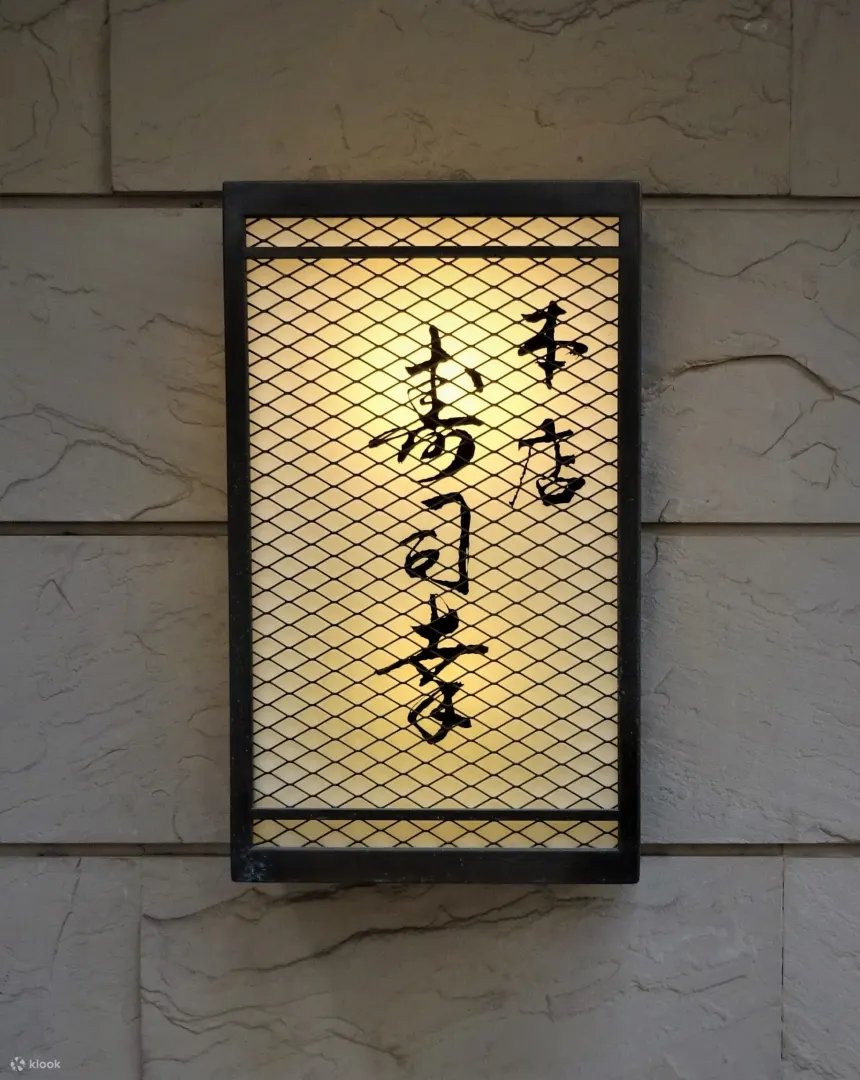 本店
寿司幸
klook